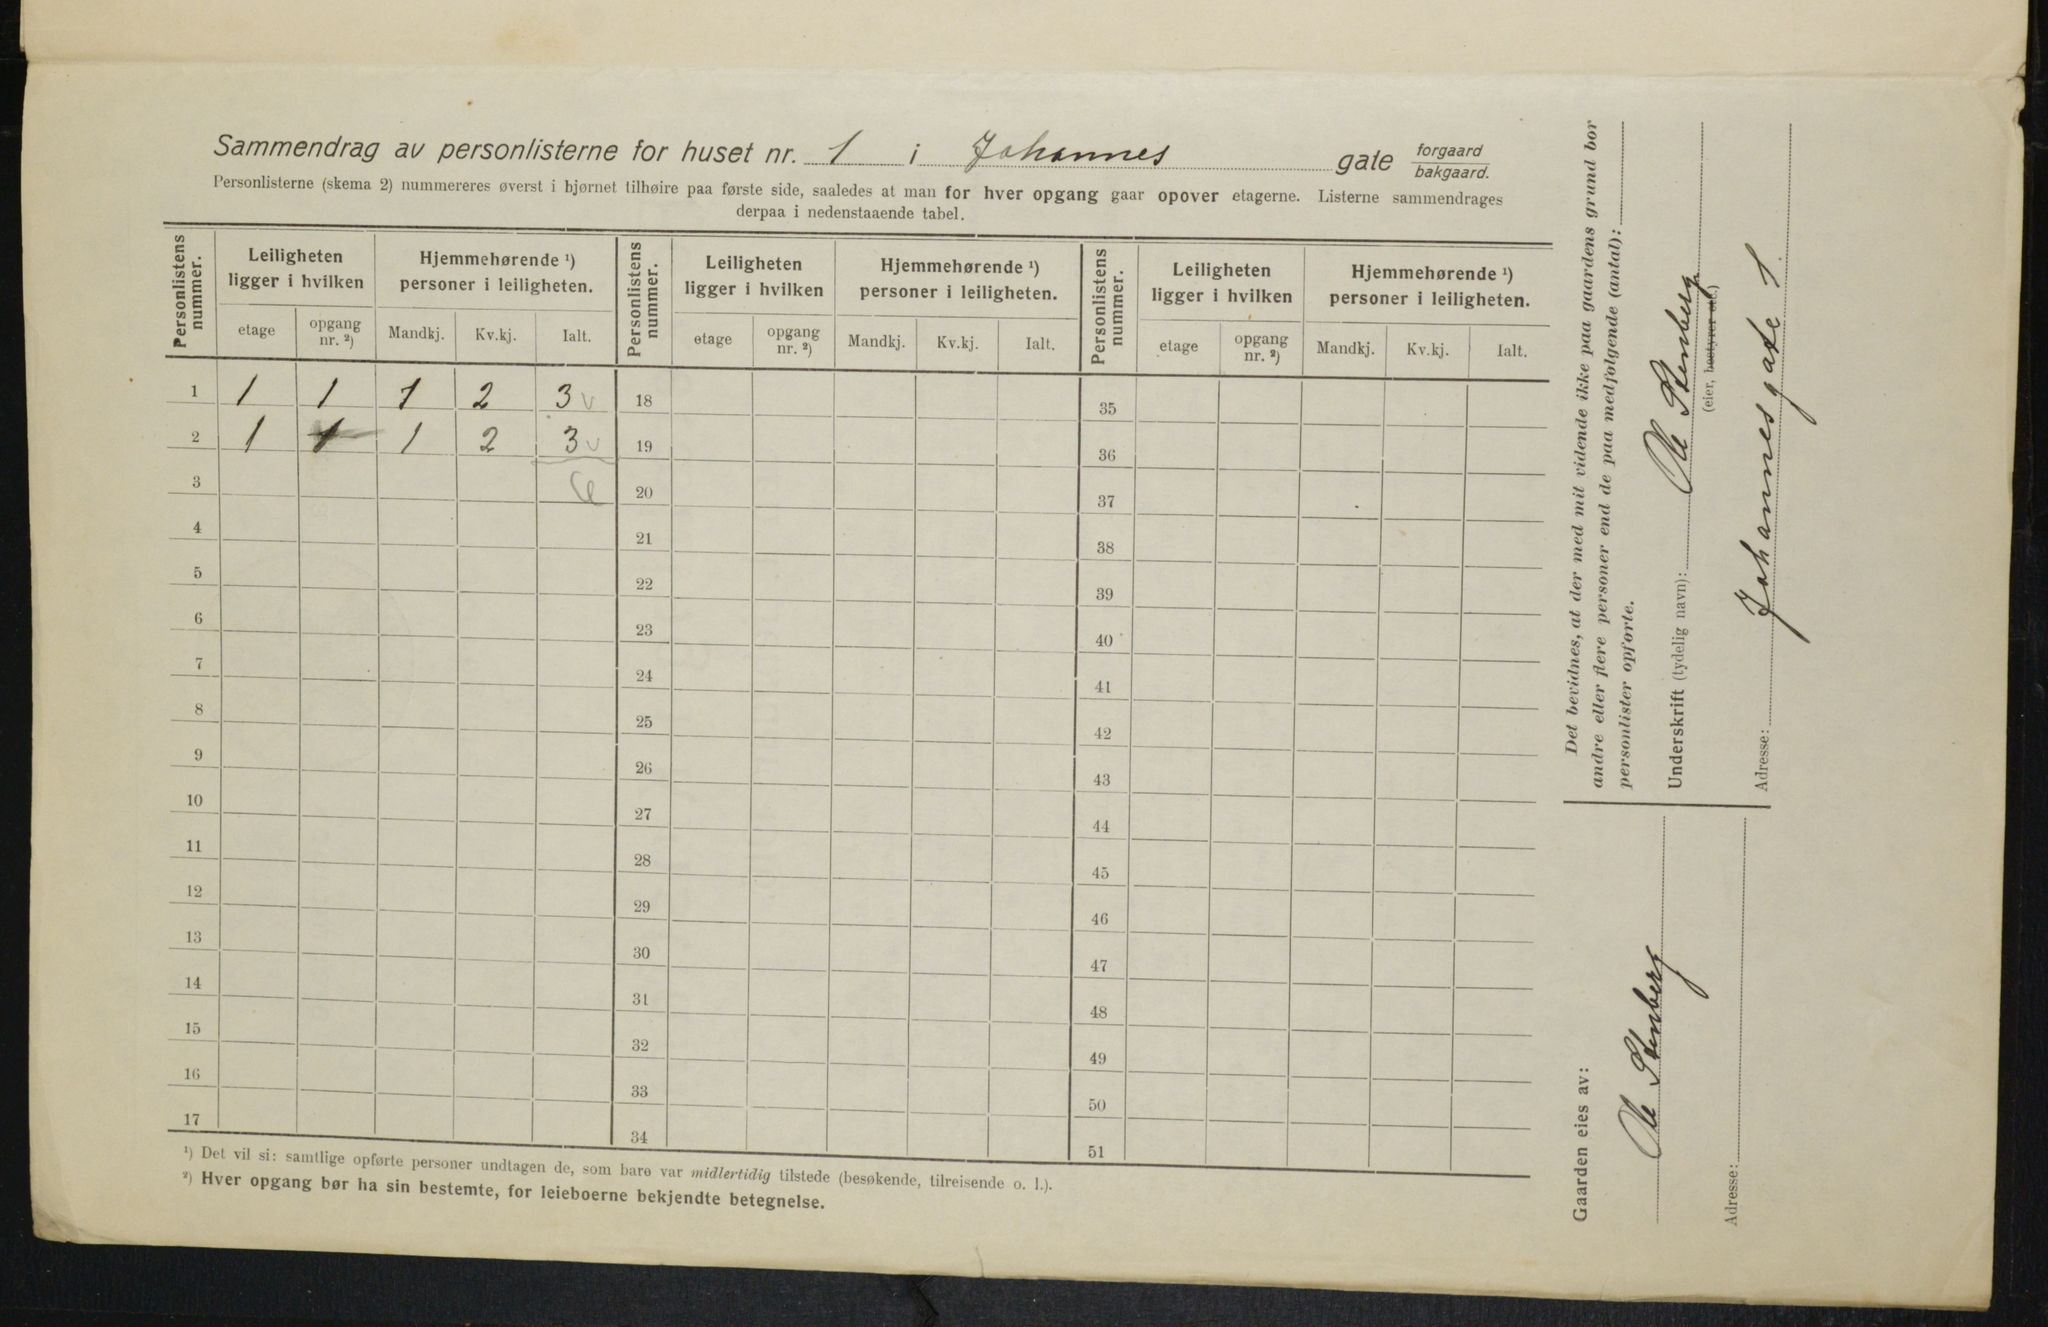 Sammendrag av personlisterne for huset nr. 1 i Johannes gate forgaard bakgaard.
Personlisterne (skema 2) nummereres øverst i hjørnet tilhøire paa første side, saaledes at man for hver opgang gaar opover etagerne. Listerne sammendrages
derpaa i nedenstaaende tabel.
Personlistens nummer. Leiligheten ligger i hvilken Hjemmehørende ¹) personer i leiligheten. Personlistens nummer. Leiligheten ligger i hvilken Hjemmehørende ¹) personer i leiligheten. Personlistens nummer. Leiligheten ligger i hvilken Hjemmehørende ¹) personer i leiligheten.
etage opgang nr. ²) Mandkj. Kv.kj. Ialt. etage opgang nr. ²) Mandkj. Kv.kj. Ialt. etage opgang nr. ²) Mandkj. Kv.kj. Ialt.
1 1 1 1 2 3 v 18 35
2 1 1 1 2 3 v 19 36
3 6 20 37
4 21 38
5 22 39
6 23 40
7 24 41
8 25 42
9 26 43
10 27 44
11 28 45
12 29 46
13 30 47
14 31 48
15 32 49
16 33 50
17 34 51
¹) Det vil si: samtlige opførte personer undtagen de, som bare var midlertidig tilstede (besøkende, tilreisende o. l.).
²) Hver opgang bør ha sin bestemte, for leieboerne bekjendte betegnelse.
Det bevidnes, at der med mit vidende ikke paa gaardens grund bor
andre eller flere personer end de paa medfølgende (antal):
personlister opførte.
Underskrift (tydelig navn): Ole Stenberg
(eier, bestyrer etc.)
Adresse: Johannesgate 1.
Gaarden eies av:
Ole Stenberg
Adresse: